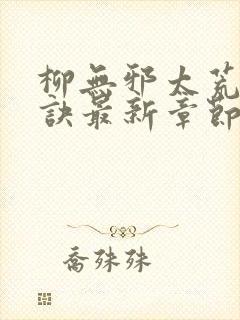 柳無邪太荒
訣最新章節
喬殊殊